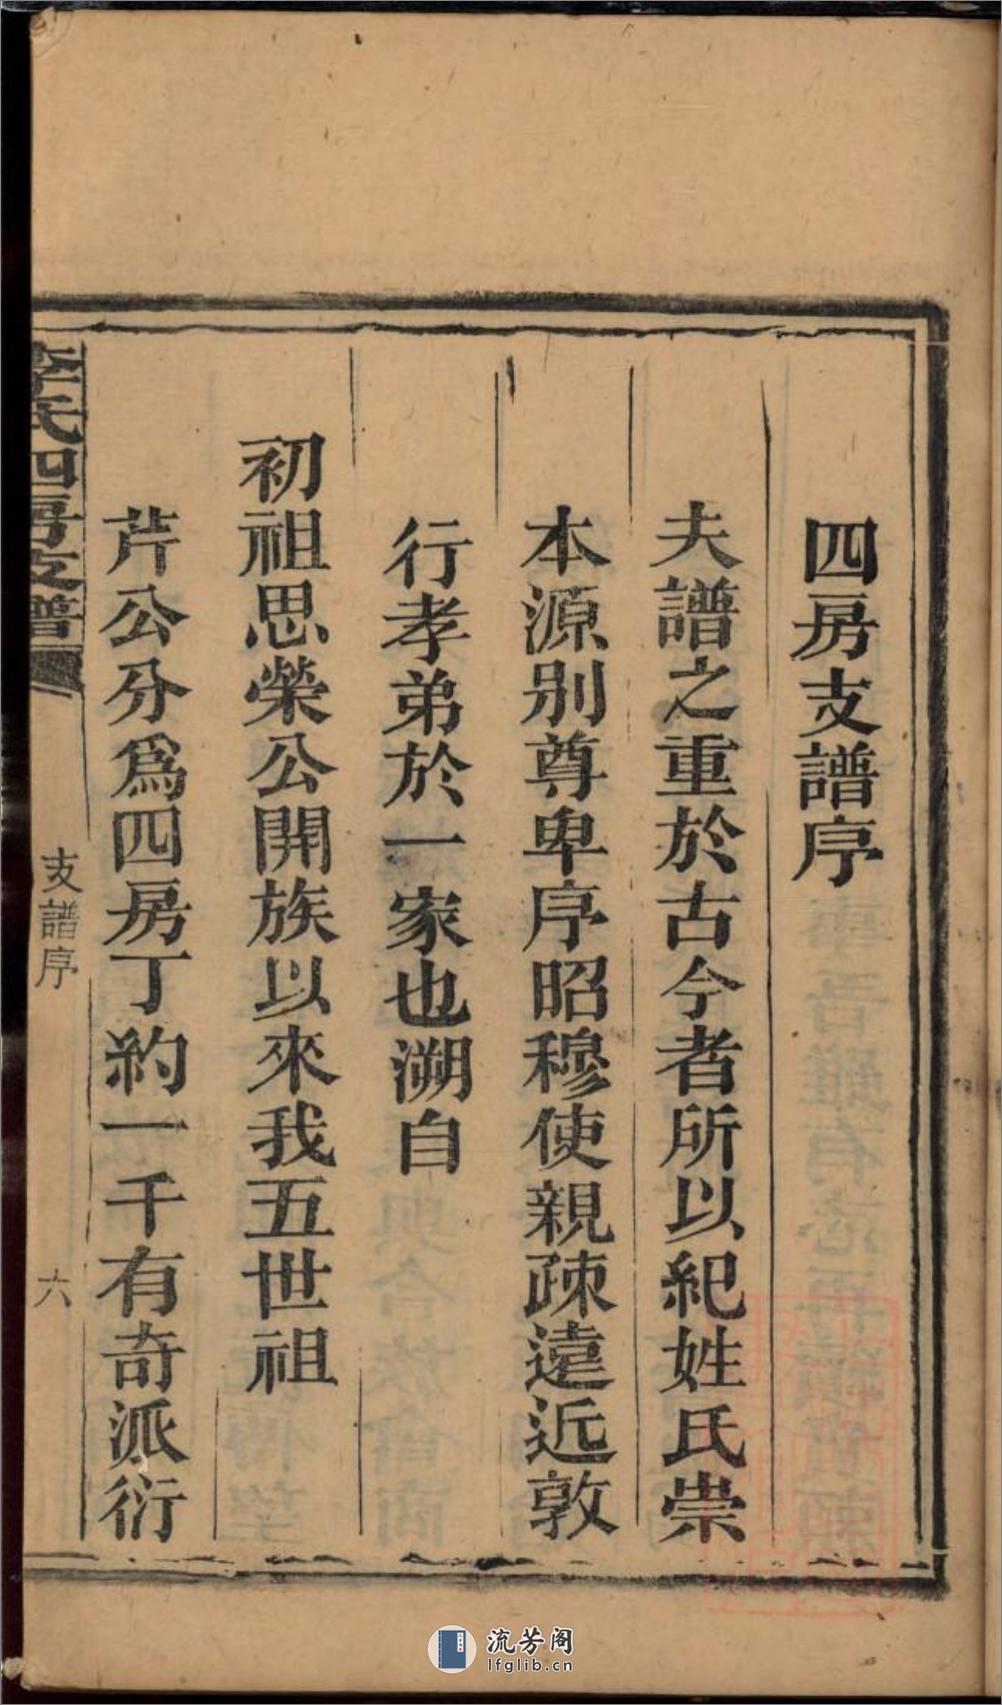 四房支譜序
夫譜之重於古今者所以紀姓氏崇
本源別尊卑序昭穆使親疎遠近敦
行孝弟於一家也溯自
初祖思榮公開族以來我五世祖
芹公分爲四房丁約一千有奇派衍
李氏四房支譜
支譜序
六
流芳阁
lfglib.cn